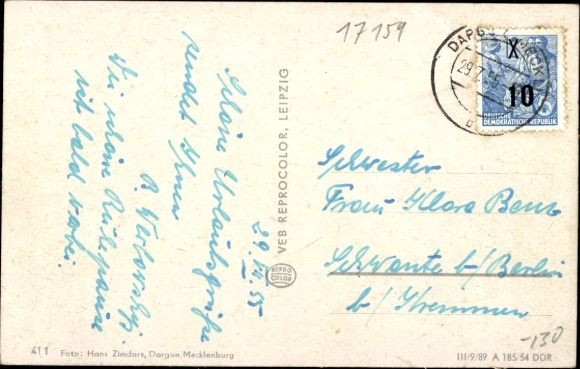 17159
Schöne Urlaubsgrüße
sendet Ihnen
P. Werbovskyj.
Die schöne Ruhepause
ist bald vorbei.
29.VII.55
VEB REPROCOLOR, LEIPZIG
REPRO
COLOR
DARGUN (MECKL)
29.7.55
X
10
DEUTSCHE
DEMOKRATISCHE REPUBLIK
Schwester
Frau Klara Benz
Schwante b/Berlin
b/Kremmen
-130
411 Foto: Hans Zimdars, Dargun Mecklenburg
III/9/89 A 185/54 DDR